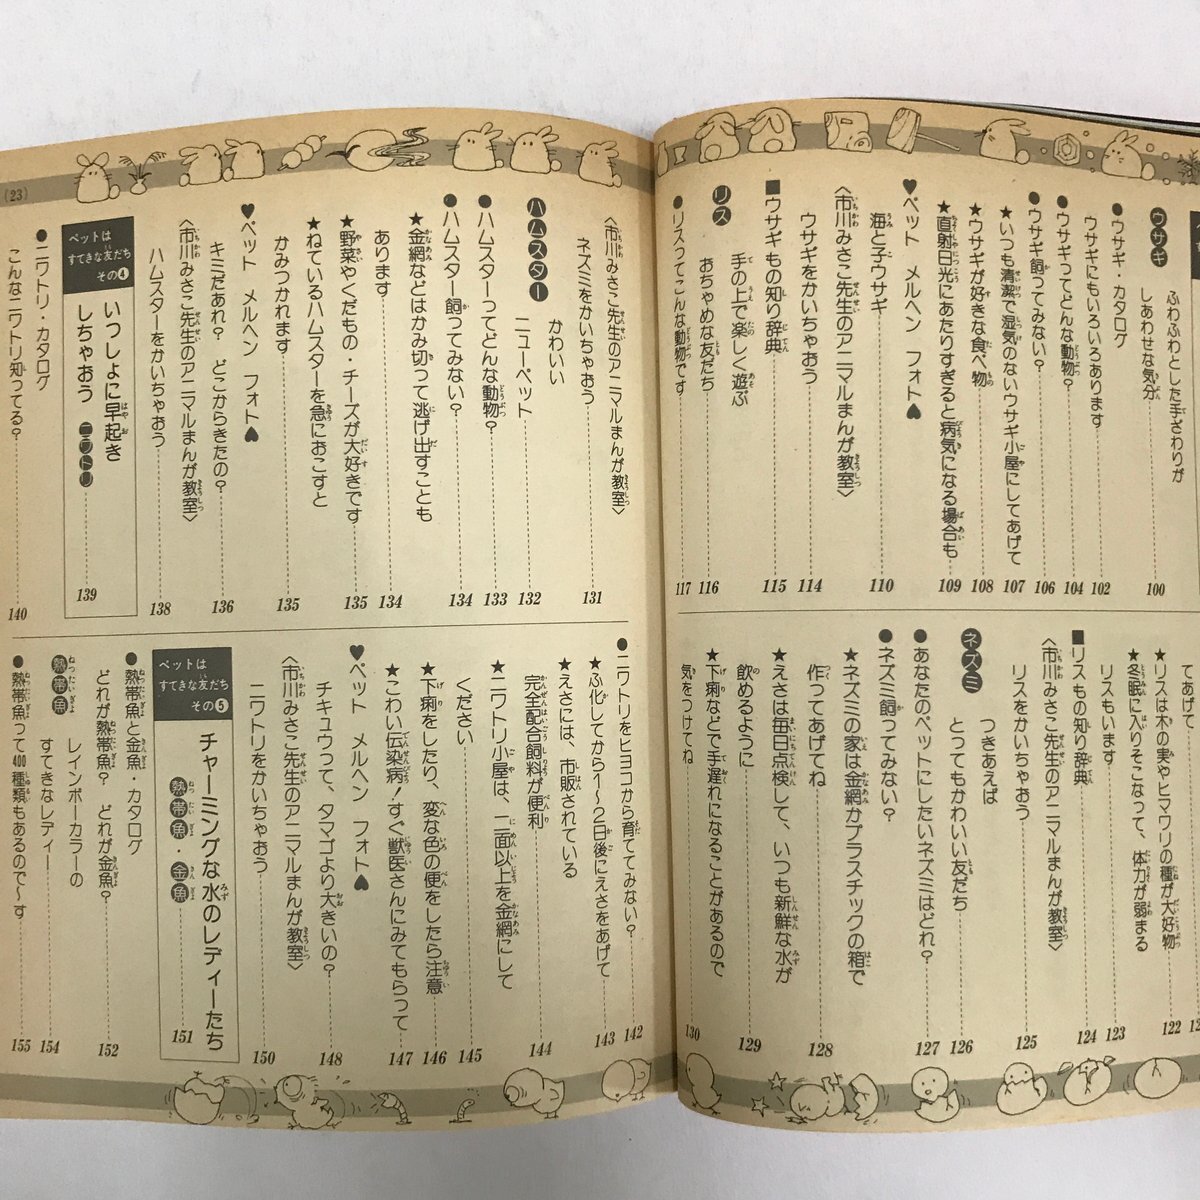 ウサギ
ふわふわとした手ざわりが
しあわせな気分 100
●ウサギ・カタログ
ウサギにもいろいろあります 102
●ウサギってどんな動物? 104
●ウサギ飼ってみない? 106
★いつも清潔で湿気のないウサギ小屋にしてあげて 107
★ウサギが好きな食べ物 108
★直射日光にあたりすぎると病気になる場合も 109
♥ペット メルヘン フォト♥
海と子ウサギ 110
〈市川みさこ先生のアニマルまんが教室〉
ウサギをかいちゃおう 114
■ウサギ もの知り辞典 115
リス
手の上で楽しく遊ぶ
おちゃめな友だち 116
●リスってこんな動物です 117
てあげて
★リスは木の実やヒマワリの種が大好物 122
★冬眠に入りそこなって、体力が弱まる
リスもいます 123
■リス もの知り辞典 124
〈市川みさこ先生のアニマルまんが教室〉
リスをかいちゃおう 125
ネズミ
つきあえば
とってもかわいい友だち 126
●あなたのペットにしたいネズミはどれ? 127
●ネズミ飼ってみない?
★ネズミの家は金網かプラスチックの箱で
作ってあげてね 128
★えさは毎日点検して、いつも新鮮な水が
飲めるように 129
★下痢などで手遅れになることがあるので
気をつけてね 130
〈市川みさこ先生のアニマルまんが教室〉
ネズミをかいちゃおう 131
ハムスター
かわいい
ニューペット 132
●ハムスターってどんな動物? 133
●ハムスター飼ってみない? 134
★金網などはかみ切って逃げ出すことも
あります 134
★野菜やくだもの・チーズが大好きです 135
★ねているハムスターを急におこすと
かみつかれます 135
♥ペット メルヘン フォト♥
キミだあれ? どこからきたの? 136
〈市川みさこ先生のアニマルまんが教室〉
ハムスターをかいちゃおう 138
ペットは
すてきな友だち
その4
いつしょに早起き
しちゃおう ニワトリ 139
●ニワトリ・カタログ
こんなニワトリ知ってる? 140
(23)
●ニワトリをヒヨコから育ててみない? 142
★ふ化してから1〜2日後にえさをあげて 143
★えさには、市販されている
完全配合飼料が便利 144
★ニワトリ小屋は、二面以上を金網にして
ください 145
★下痢をしたり、変な色の便をしたら注意 146
★こわい伝染病!すぐ獣医さんにみてもらって 147
♥ペット メルヘン フォト♥
チキュウって、タマゴより大きいの? 148
〈市川みさこ先生のアニマルまんが教室〉
ニワトリをかいちゃおう 150
ペットは
すてきな友だち
その5
チャーミングな水のレディーたち
熱帯魚・金魚 151
●熱帯魚と金魚・カタログ
どれが熱帯魚? どれが金魚? 152
熱帯魚
レインボーカラーの
すてきなレディー 154
●熱帯魚って400種類もあるので〜す 155